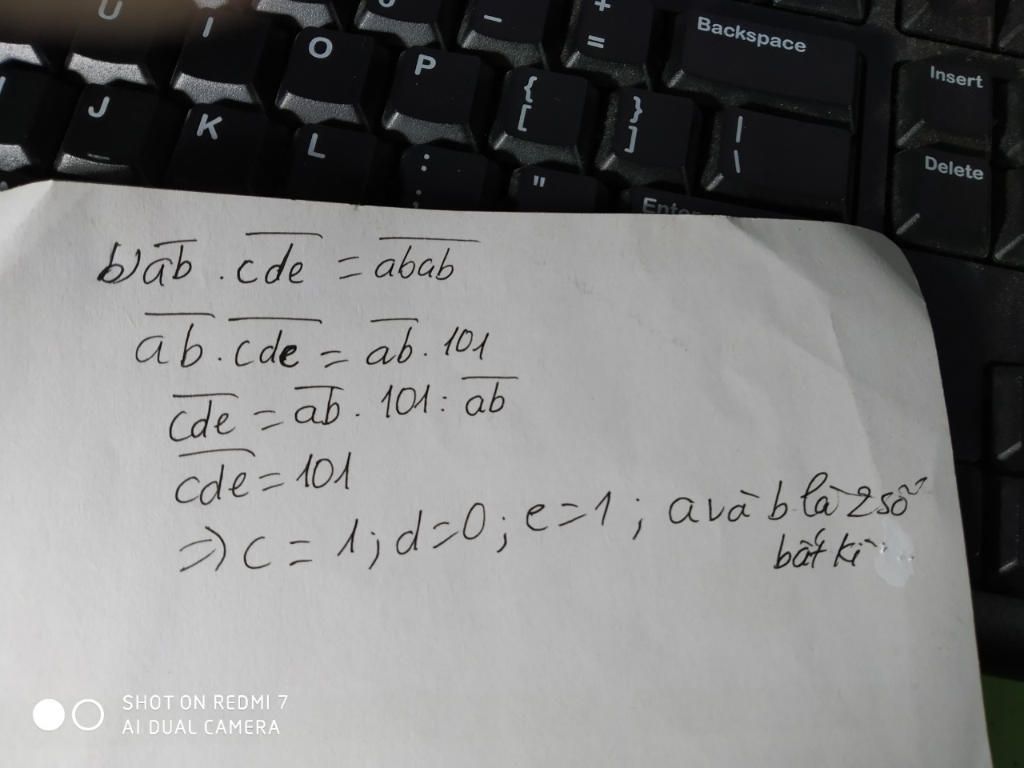 U I O P { [ } ] | \ _ - + = Backspace Insert
J K L : ; " Enter Delete
b) a͞b . c͞d͞e = a͞b͞a͞b
a͞b . c͞d͞e = a͞b . 101
c͞d͞e = a͞b . 101 : a͞b
c͞d͞e = 101
=> c = 1 ; d = 0 ; e = 1 ; a và b là 2 số
bất kì
SHOT ON REDMI 7
AI DUAL CAMERA